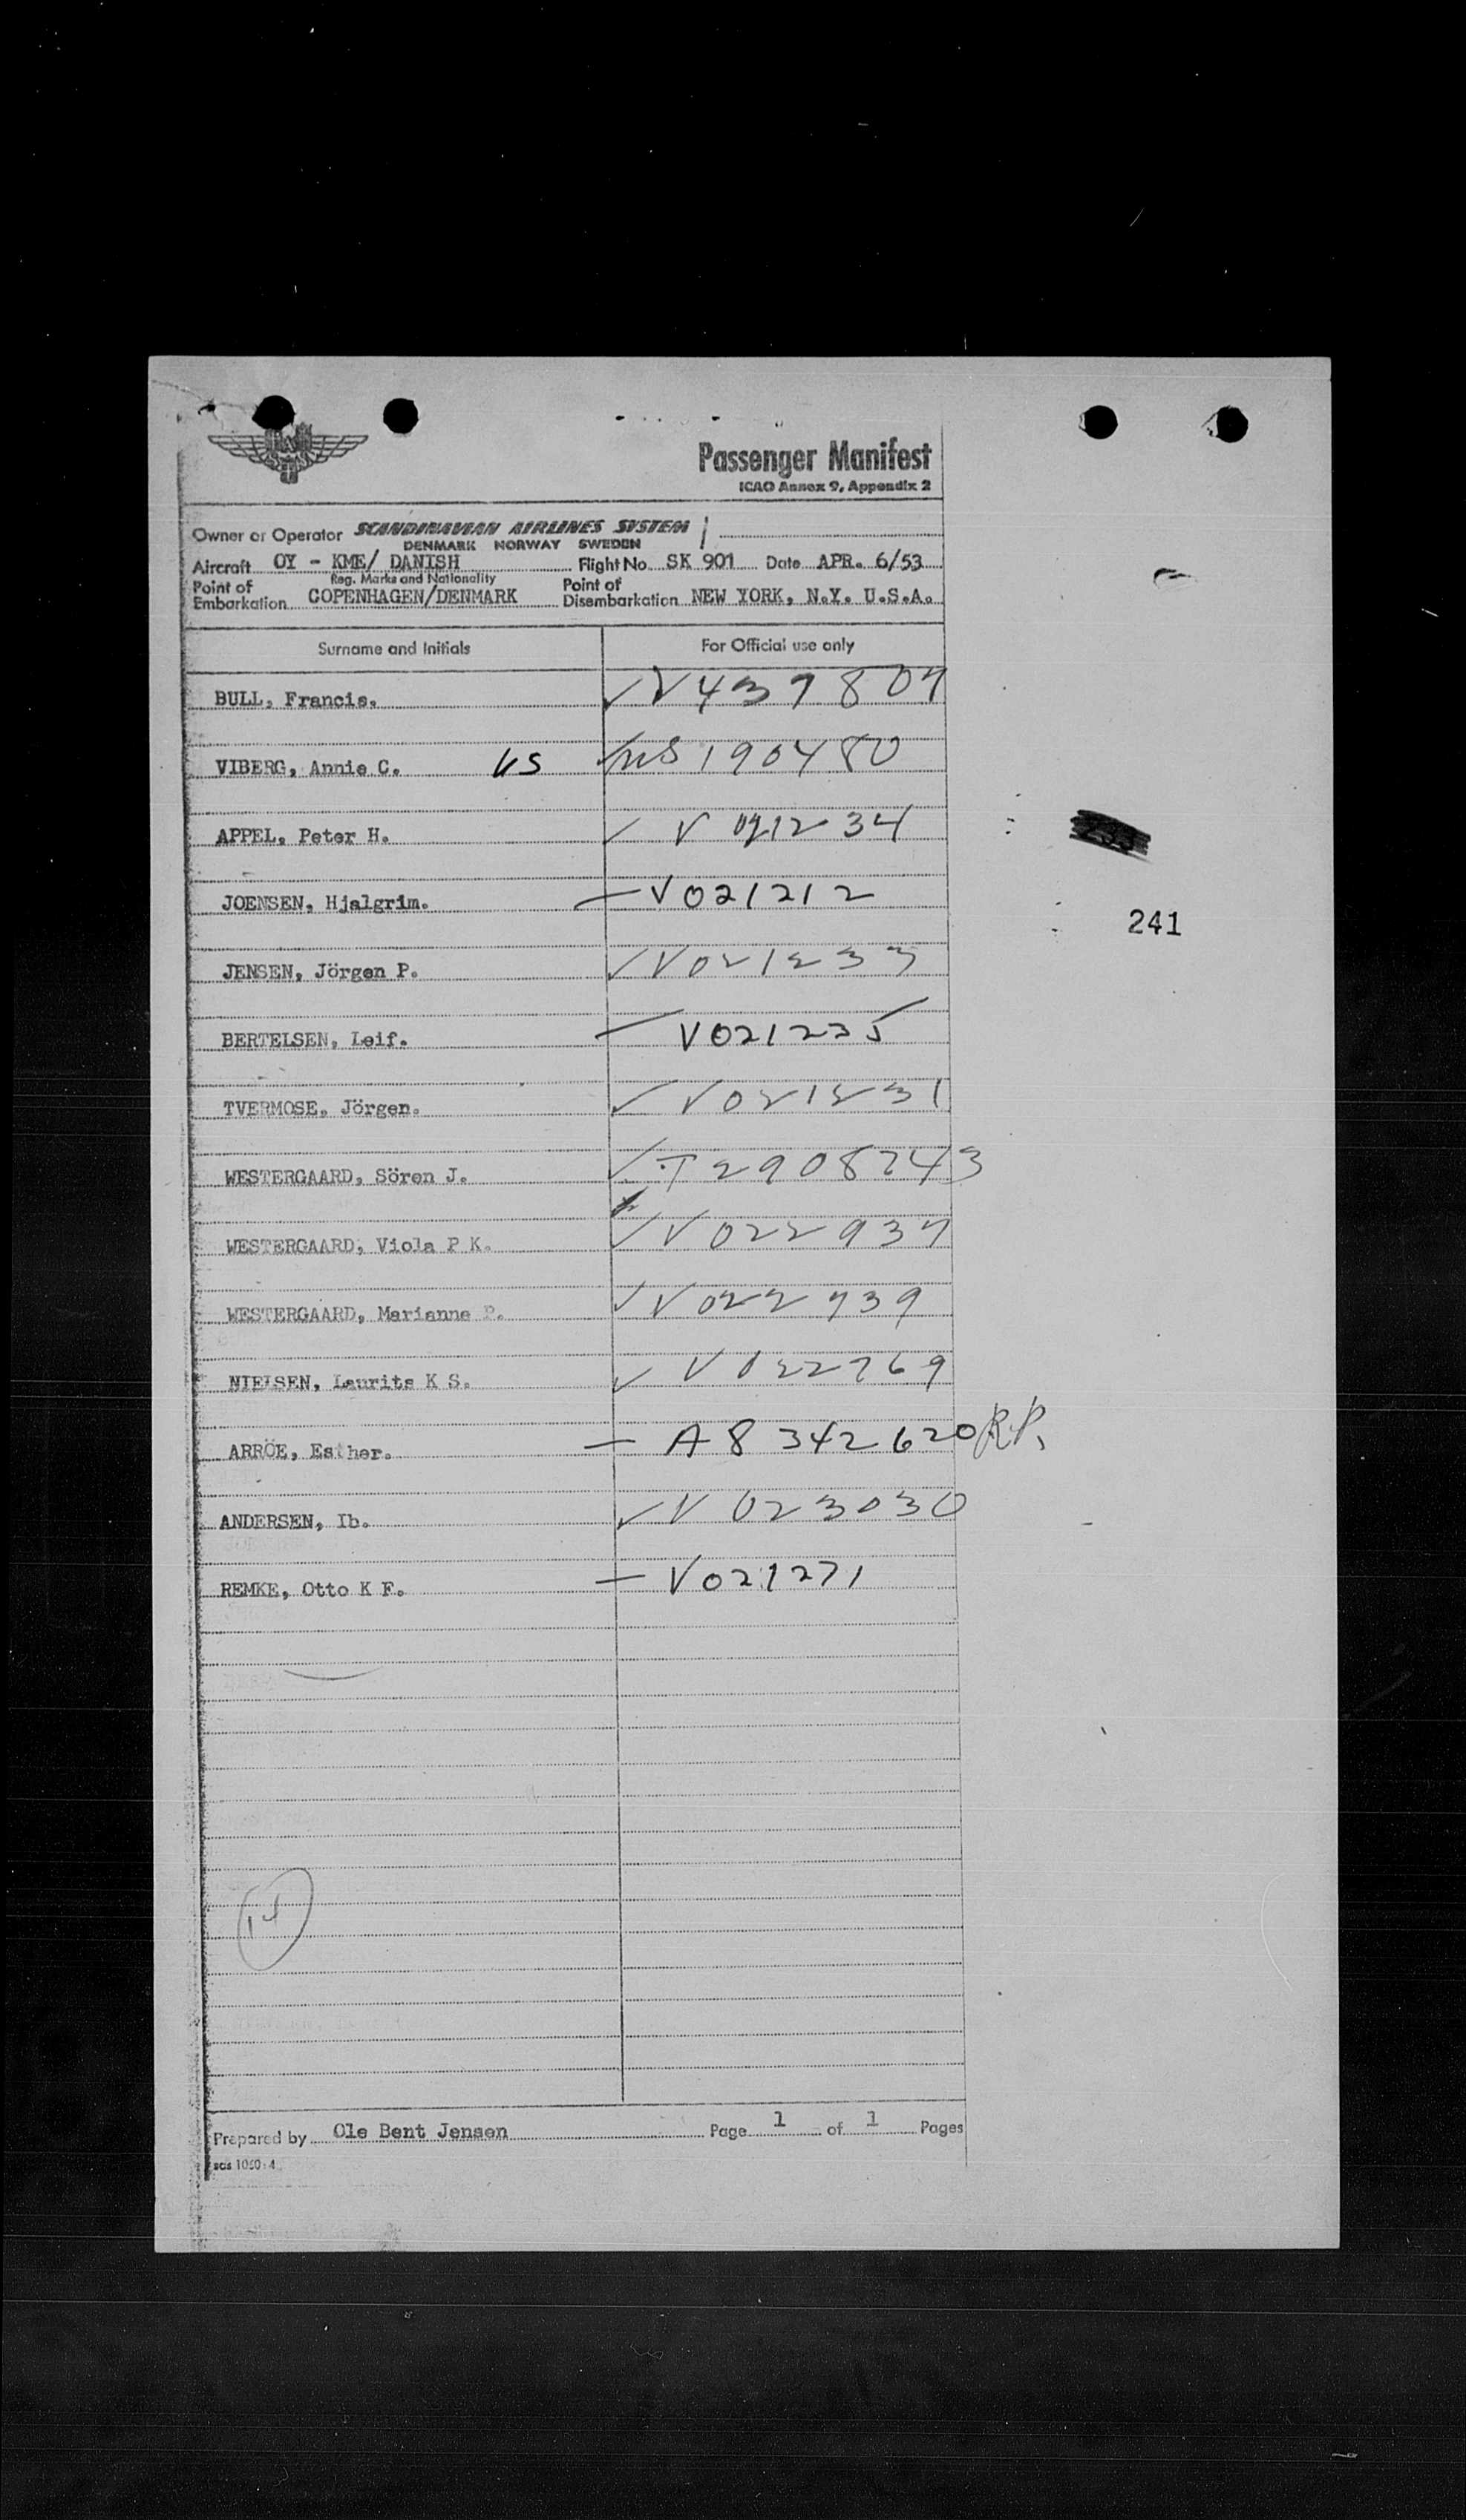 Passenger Manifest
ICAO Annex 9, Appendix 2
Owner or Operator SCANDINAVIAN AIRLINES SYSTEM
DENMARK NORWAY SWEDEN
Aircraft OY - KME/ DANISH Flight No. SK 901 Date APR. 6/53
Reg. Marks and Nationality
Point of Embarkation COPENHAGEN/DENMARK Point of Disembarkation NEW YORK, N.Y. U.S.A.
Surname and Initials For Official use only
BULL, Francis. V439807
VIBERG, Annie C. US 190480
APPEL, Peter H. 
JOENSEN, Hjalgrim. V021212
241
JENSEN, Jörgen P. V021233
BERTELSEN, Leif. V021225
TVERMOSE, Jörgen. V021231
WESTERGAARD, Sören J. T2908743
WESTERGAARD, Viola P K. V022937
WESTERGAARD, Marianne P. V022939
NIELSEN, Laurits K S. V022769
ARRÖE, Esther. A8342620 R.P.
ANDERSEN, Ib. V023030
REMKE, Otto K F. V021271
14
Prepared by Ole Bent Jensen Page 1 of 1 Pages